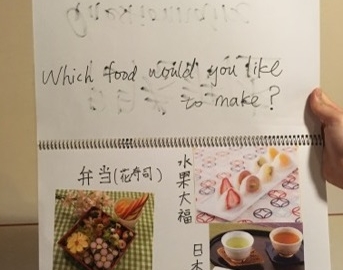 Which food would you like
to make?
弁当(花寿司)
水果大福
日本